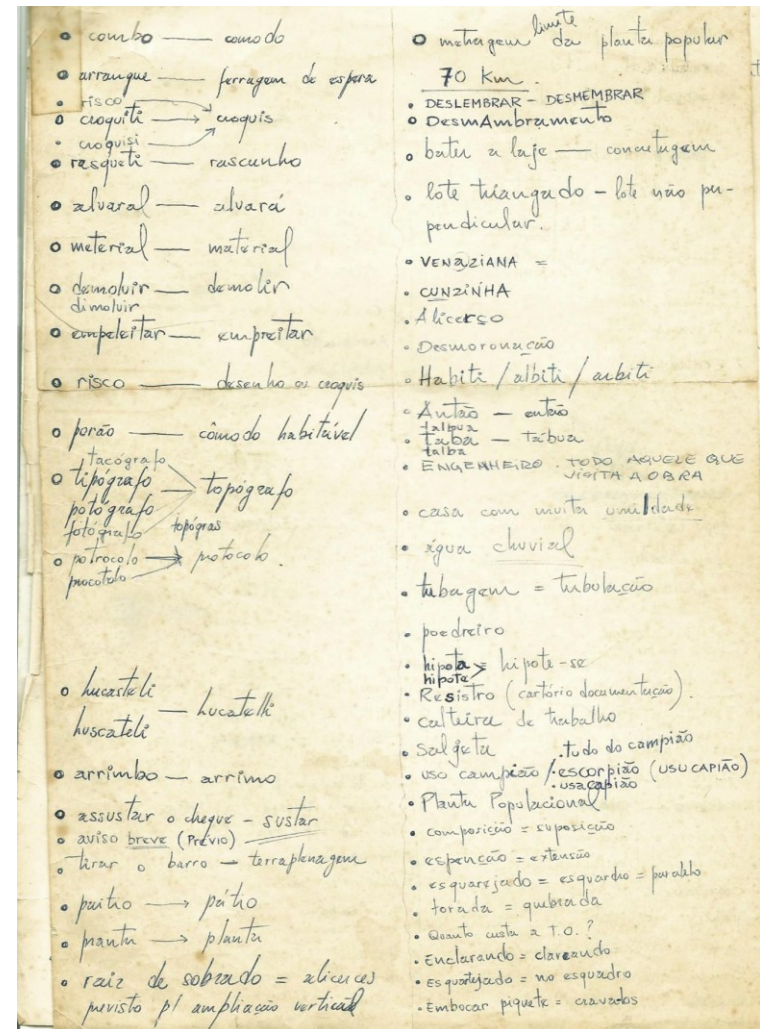 • combo — comodo
• arranque — ferragem de espera
• risco
• croquiti → croquis
• croquisi
• rasqueti — rascunho
• alvaral — alvará
• meterial — material
• demoluir — demolir
dimoluir
• empeleitar — empreitar
• risco — desenho ou croquis
• porão — cômodo habitável
tacógrafo
• tipógrafo — topógrafo
potógrafo
fotógrafo topógras
• potrocolo → protocolo.
procotolo
• lucasteli
— Lucatelli
luscateli
• arrimbo — arrimo
• assustar o cheque - sustar
• aviso breve (Prévio)
• tirar o barro — terraplenagem
• paitro → pátio
• pranta → planta
• raiz de sobrado = alicerces
previsto p/ ampliação vertical
limite
• metragem da planta popular
70 Km.
• DESLEMBRAR - DESMEMBRAR
• DesmAmbramento
• bater a laje — concretagem
• lote triangado - lote não per-
pendicular.
• VENAZIANA =
• CUNZINHA
• Alicerso
• Desmoronução
• Habiti / albiti / arbiti
• Antão — então
talbua
• taba — tábua
talba
• ENGENHEIRO . TODO AQUELE QUE
VISITA A OBRA
• casa com muita umildade
• água chuvial
• tubagem = tubulação
• poedreiro
• hipota = hipote-se
hipote
• Resistro (cartório documentação).
• calteira de trabalho
• Salgeta
• tudo do campião
• uso campião / • escorpião (USUCAPIÃO)
• usacapião
• Planta Populacional
• composição = suposição
• espenção = extensão
• esquarejado = esquardro = paralelo
• torada = quebrada
• Quanto custa a T.O.?
• Enclarando = clareando
• esquartejado = no esquadro
• Embocar piquete = cravados